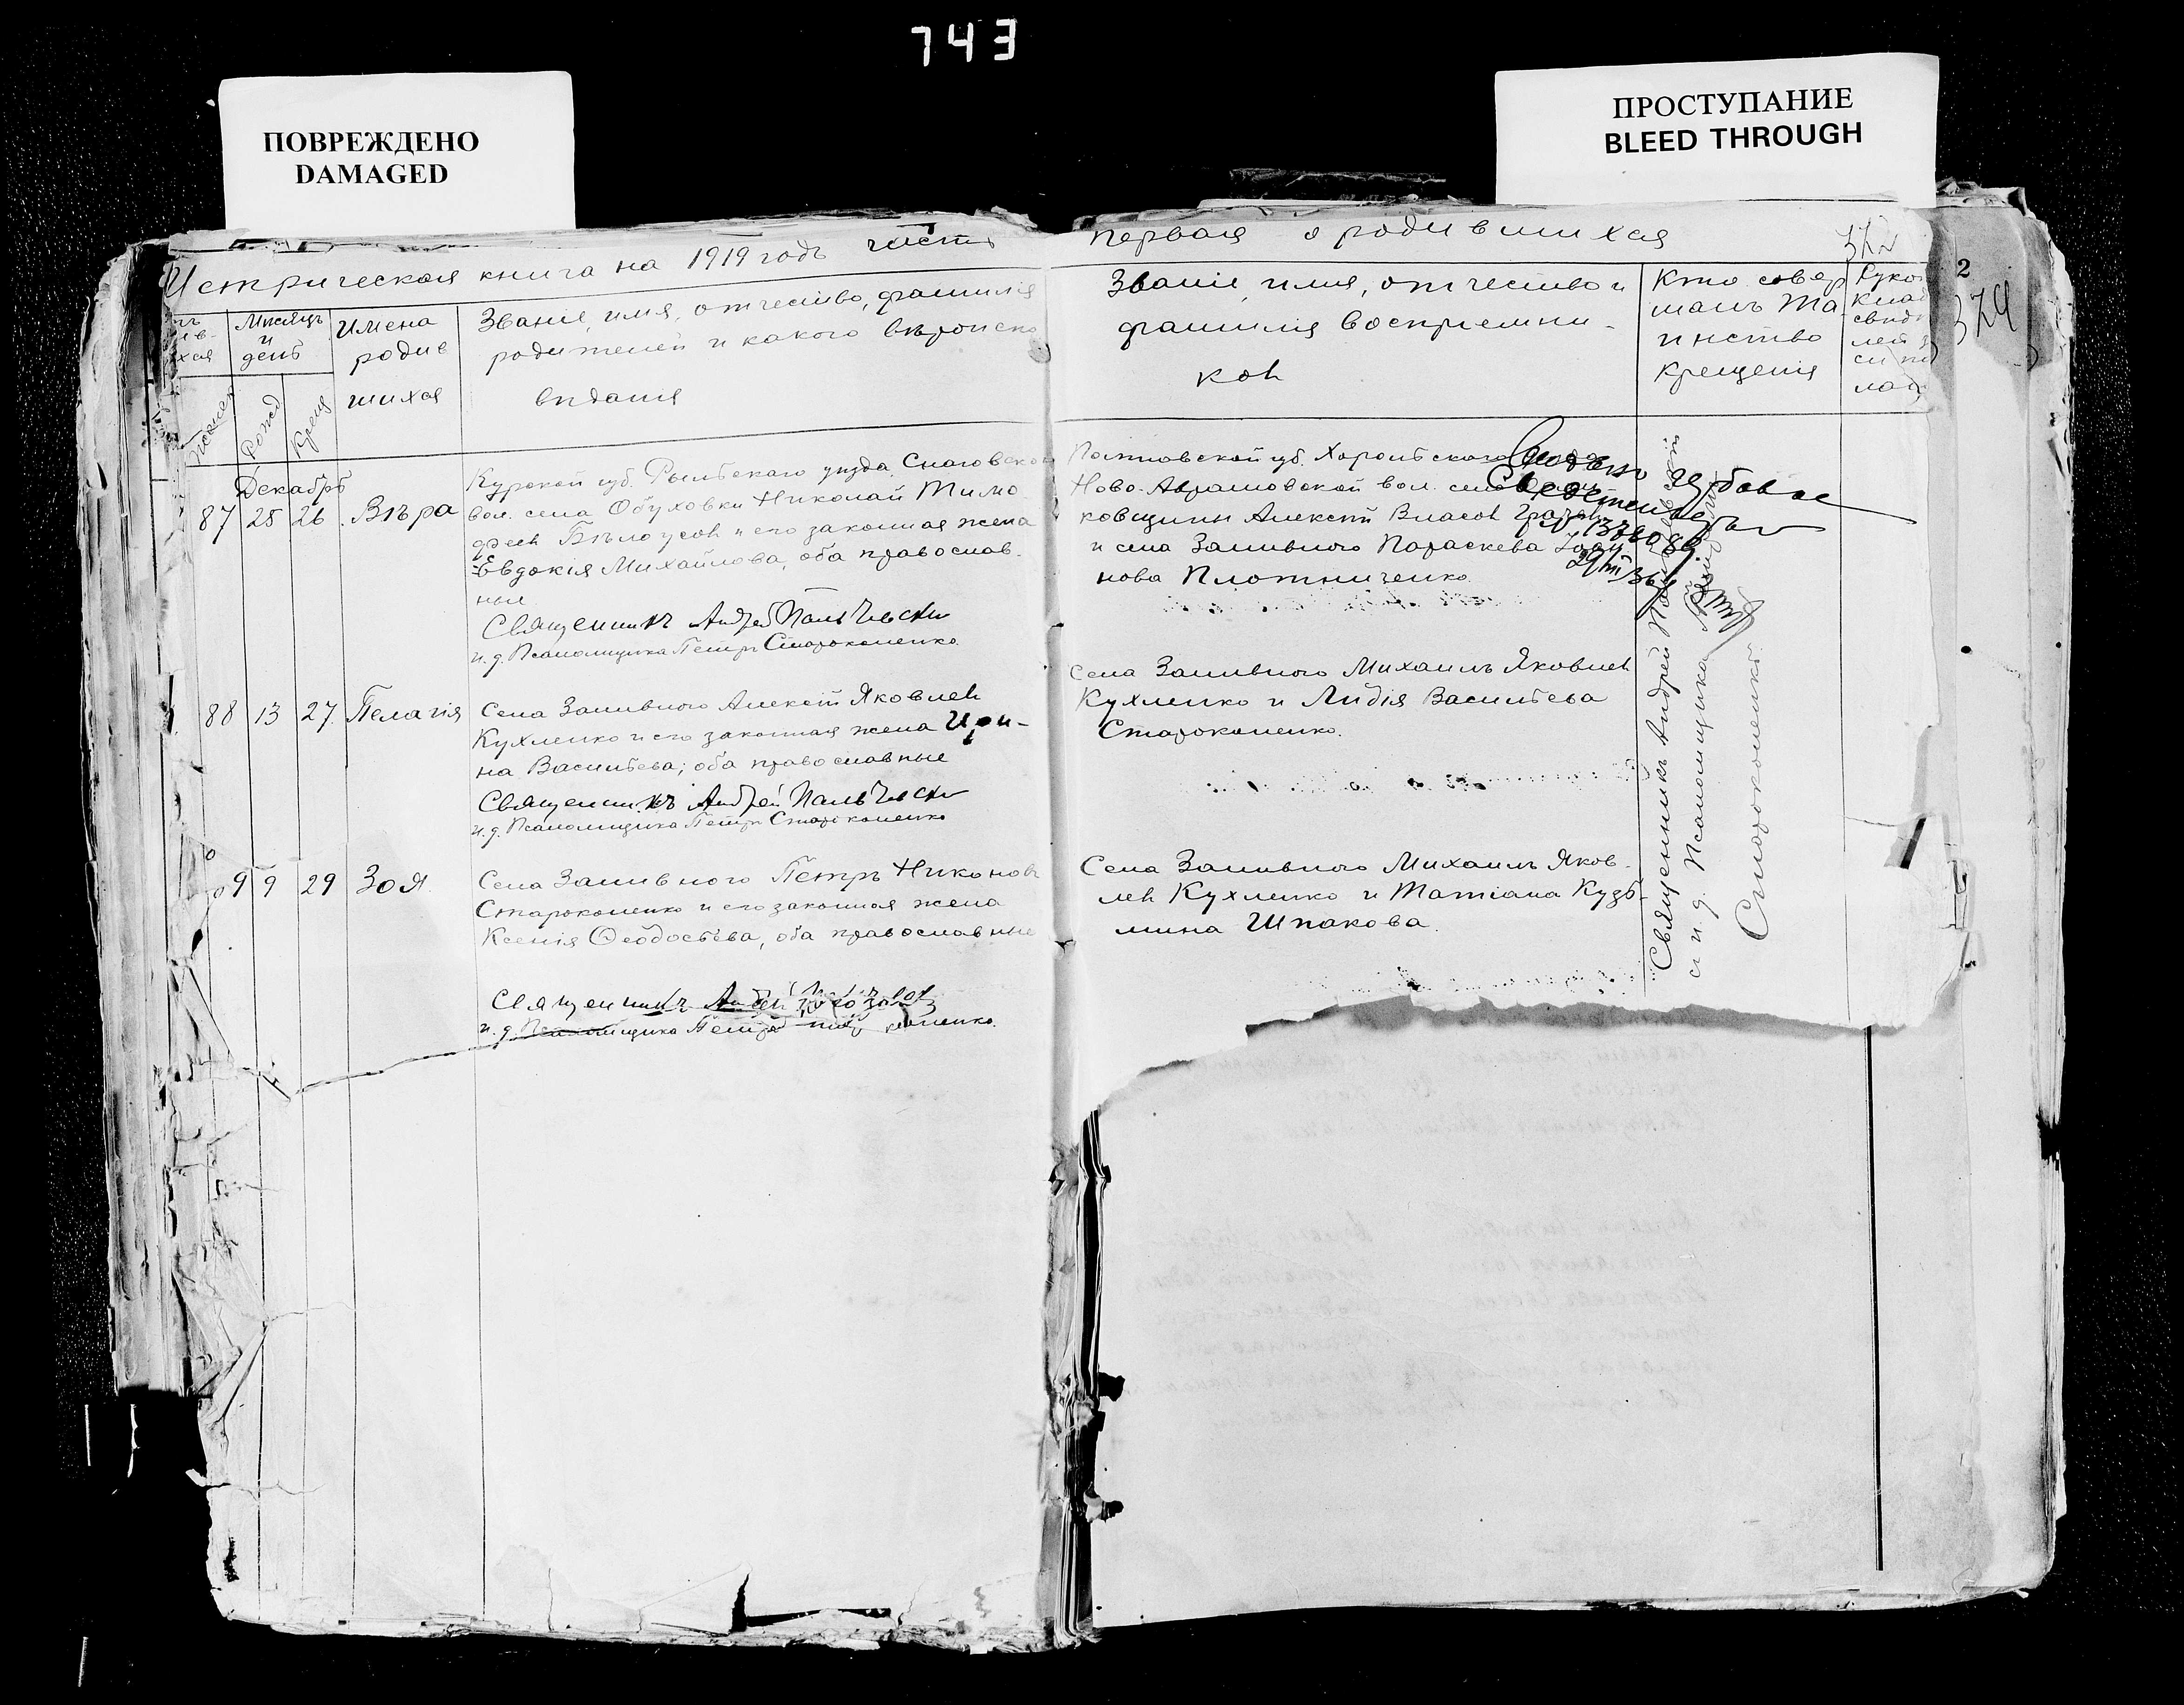 743
ПОВРЕЖДЕНО
DAMAGED
ПРОСТУПАНИЕ
BLEED THROUGH
Метрическая книга на 1919 годъ часть первая о родившихся
2
374
Мѣсяцъ и день
Имена родившихся
Званіе, имя, отчество, фамилія родителей и какого вѣроисповѣданія
Званіе, имя, отчество и фамилія воспріемниковъ
Кто совершалъ таинство крещенія
Женск
Рожд
Крещ
Декабрь
87 25 26 Вѣра
Курской губ. Рыльскаго уѣзда Снаговской
вол. села Обуховки Николай Тимо-
феев Бѣлоусов и его законная жена
Евдокія Михайлова, оба православ-
ные
Священникъ Андрей Пальчевскій
и. д. Псаломщика Петръ Староконенко.
Полтавской губ. Хорольского
Ново-Аврамовской вол. села
ковщины Алексѣй Власов
и села Заливного Параскева Іоан-
нова Плотниченко.
88 13 27 Пелагія
Села Заливного Алексѣй Яковлев
Кухленко и его законная жена Ири-
на Васильева; оба православные
Священникъ Андрей Пальчевскій
и. д. Псаломщика Петръ Староконенко
Села Заливного Михаилъ Яковлев
Кухленко и Лидія Васильева
Староконенко.
9 9 29 Зоя
Села Заливного Петръ Никонов
Староконенко и его законная жена
Ксенія Ѳеодосьева, оба православные
Священникъ
и. д. Псаломщика Петръ
Села Заливного Михаилъ Яков-
лев Кухленко и Татіана Кузь-
мина Шпакова.
Священникъ Андрей Пальчевскій
и и. д. Псаломщика
Староконенко.